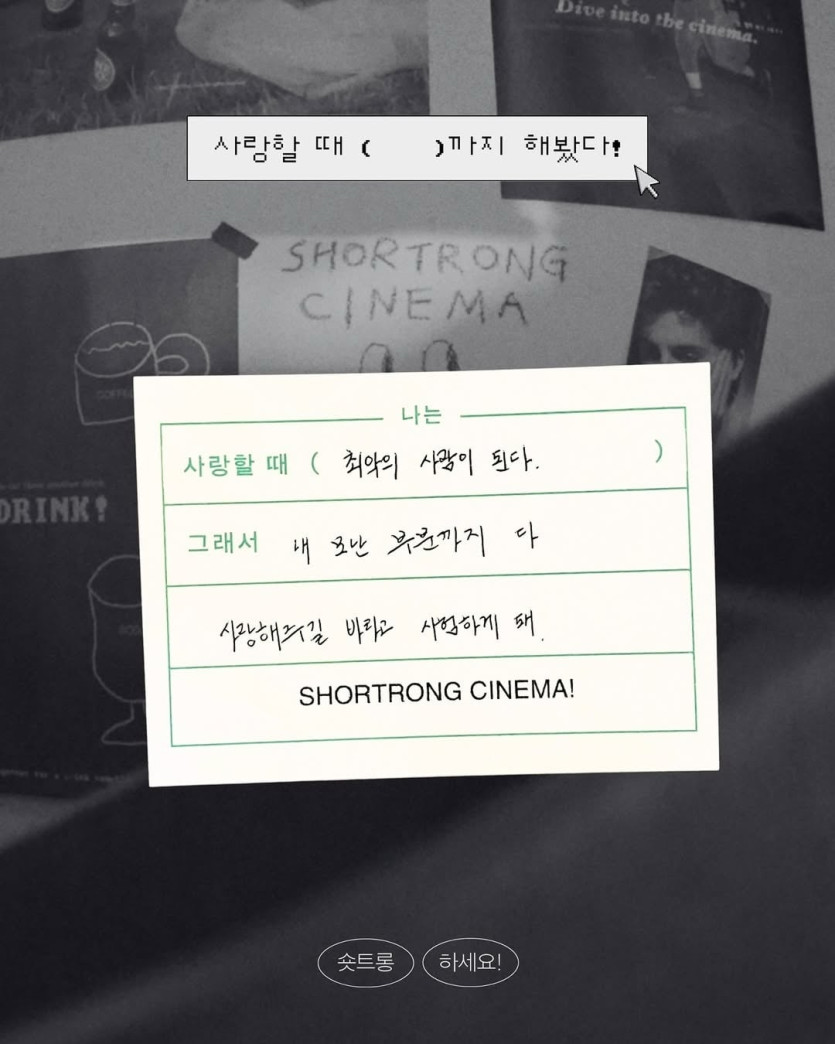 Dive into the cinema.
사랑할 때 (      )까지 해봤다!
SHORTRONG
CINEMA
나는
사랑할 때 ( 최악의 사람이 된다. )
그래서 내 모난 부분까지 다
사랑해주길 바라고 시험하게 돼.
SHORTRONG CINEMA!
DRINK!
숏트롱 하세요!